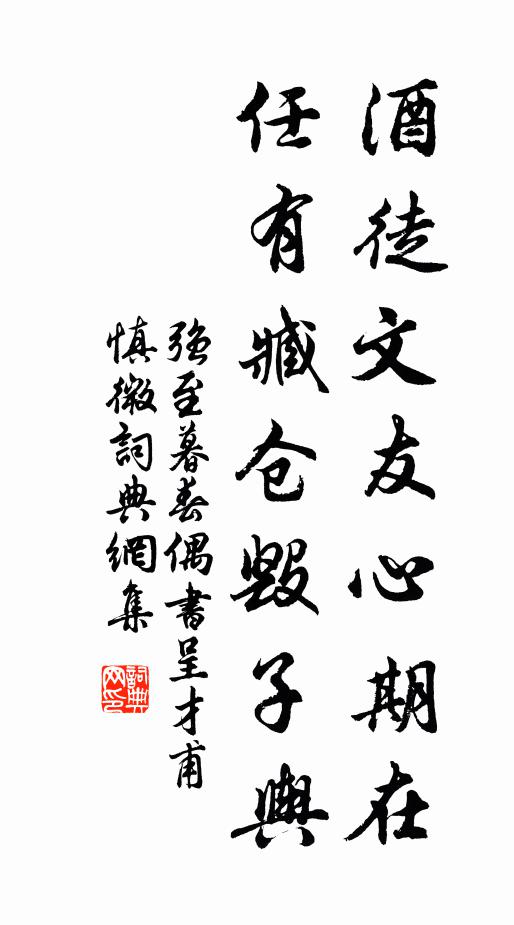 酒徒文友心期在
任有臧仓毁子舆
强至暮春偶书呈才甫
慎微詞典網集
詞典网印